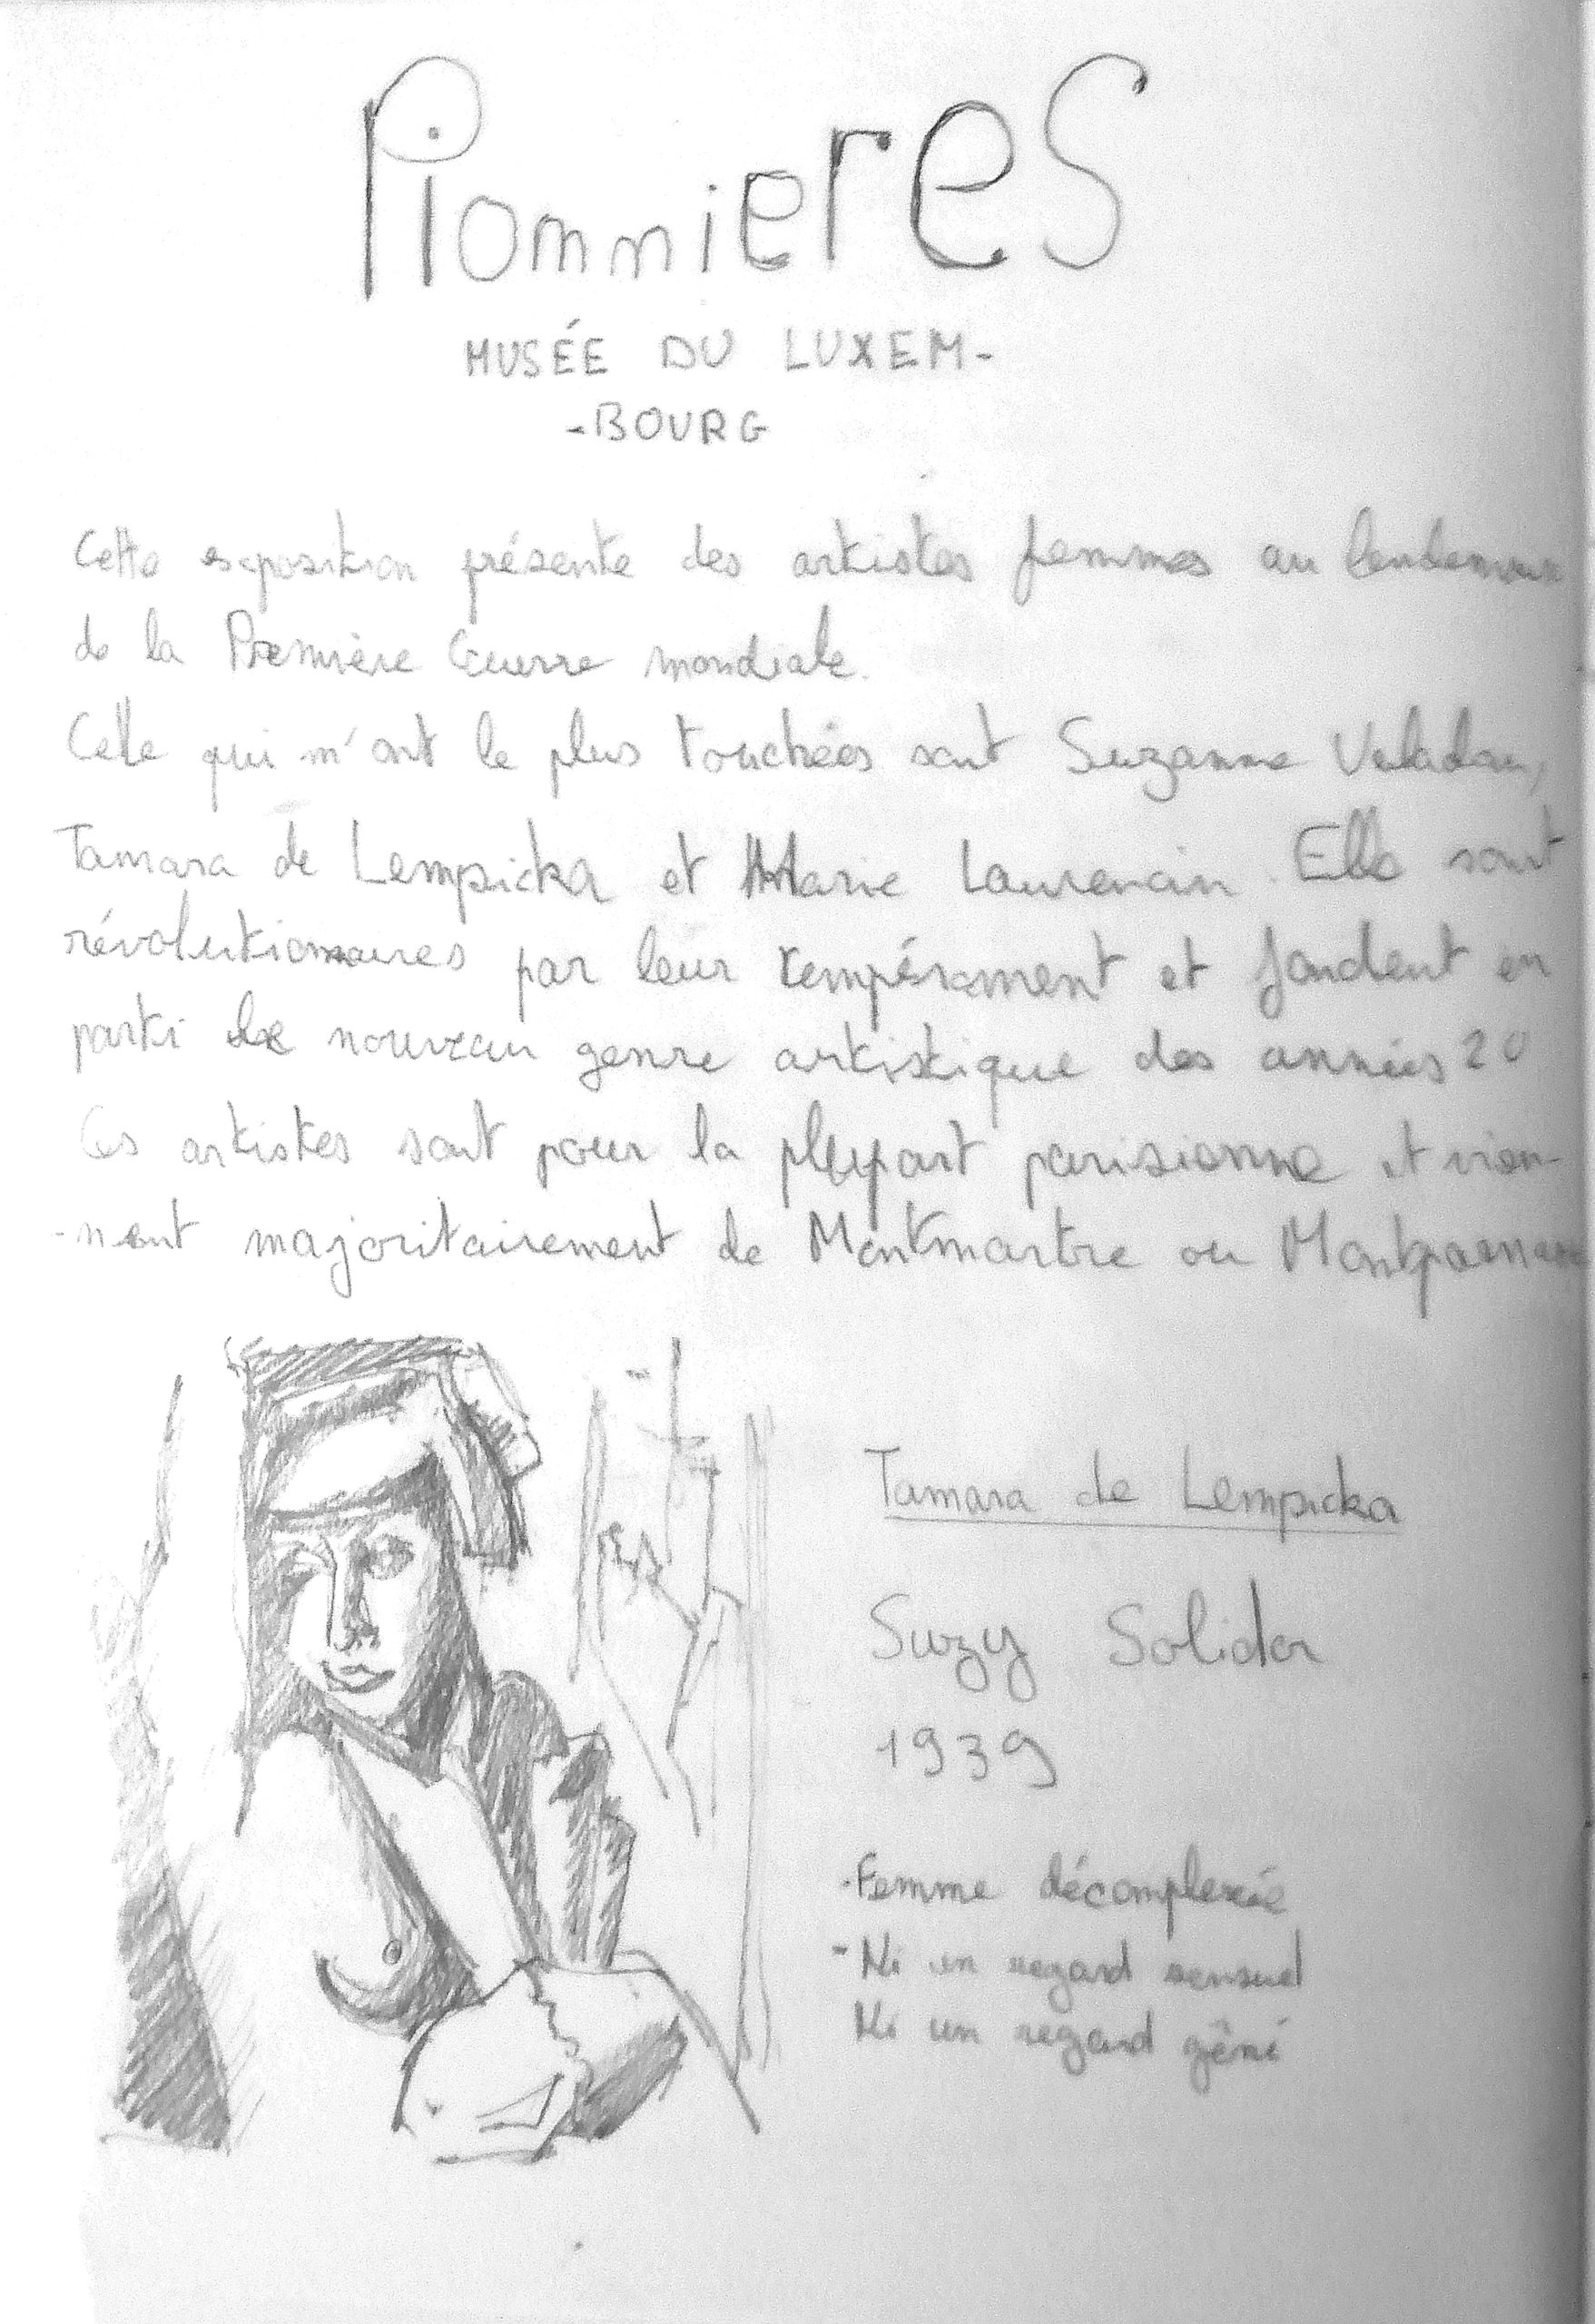 Pionnieres
MUSÉE DU LUXEM-
-BOURG
Cette exposition présente des artistes femmes au lendemain
de la Première Guerre mondiale.
Celle qui m'ont le plus touchées sont Suzanne Valadon,
Tamara de Lempicka et Marie Laurencin. Elle sont
révolutionnaires par leur tempérament et fondent en
parti le nouveau genre artistique des années 20
Ces artistes sont pour la plupart parisienne et vien-
-nent majoritairement de Montmartre ou Montparnasse
Tamara de Lempicka
Suzy Solidor
1939
-Femme décomplexée
-Ni un regard sensuel
Ni un regard gêné